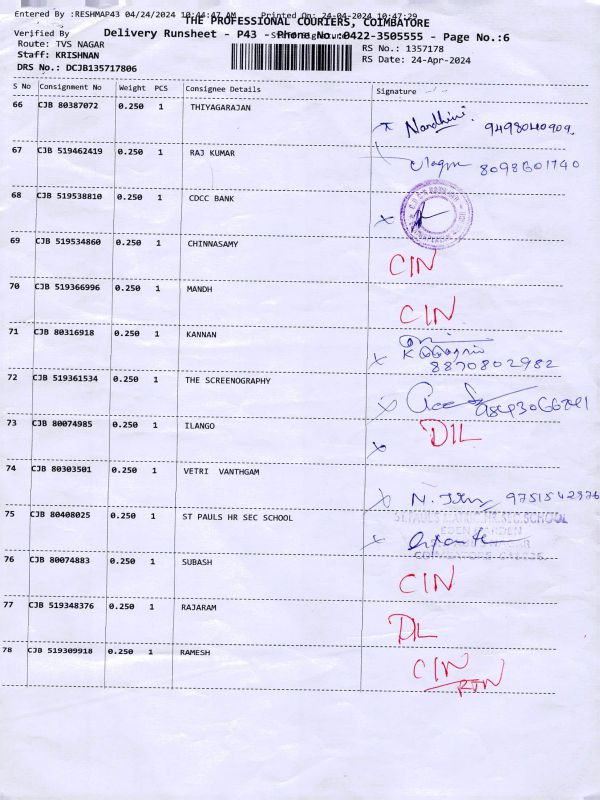 Entered By :RESHMAP43 04/24/2024 10:44:47 AM Printed On: 24-04-2024 10:47:29
THE PROFESSIONAL COURIERS, COIMBATORE
Verified By
Delivery Runsheet - P43 - Phone No. 0422-3505555 - Page No.:6
Route: TVS NAGAR
RS No.: 1357178
Staff: KRISHNAN
RS Date: 24-Apr-2024
DRS No.: DCJB135717806
S No Consignment No Weight PCS Consignee Details Signature
66 CJB 80387072 0.250 1 THIYAGARAJAN
Nandhini 9498040909
67 CJB 519462419 0.250 1 RAJ KUMAR
8098601740
68 CJB 519538810 0.250 1 CDCC BANK
69 CJB 519534860 0.250 1 CHINNASAMY
CIN
70 CJB 519366996 0.250 1 MANDH
CIN
71 CJB 80316918 0.250 1 KANNAN
8870802982
72 CJB 519361534 0.250 1 THE SCREENOGRAPHY
73 CJB 80074985 0.250 1 ILANGO
DIL
74 CJB 80303501 0.250 1 VETRI VANTHGAM
9751542876
75 CJB 80408025 0.250 1 ST PAULS HR SEC SCHOOL
76 CJB 80074883 0.250 1 SUBASH
CIN
77 CJB 519348376 0.250 1 RAJARAM
DL
78 CJB 519309918 0.250 1 RAMESH
CIN
RTN